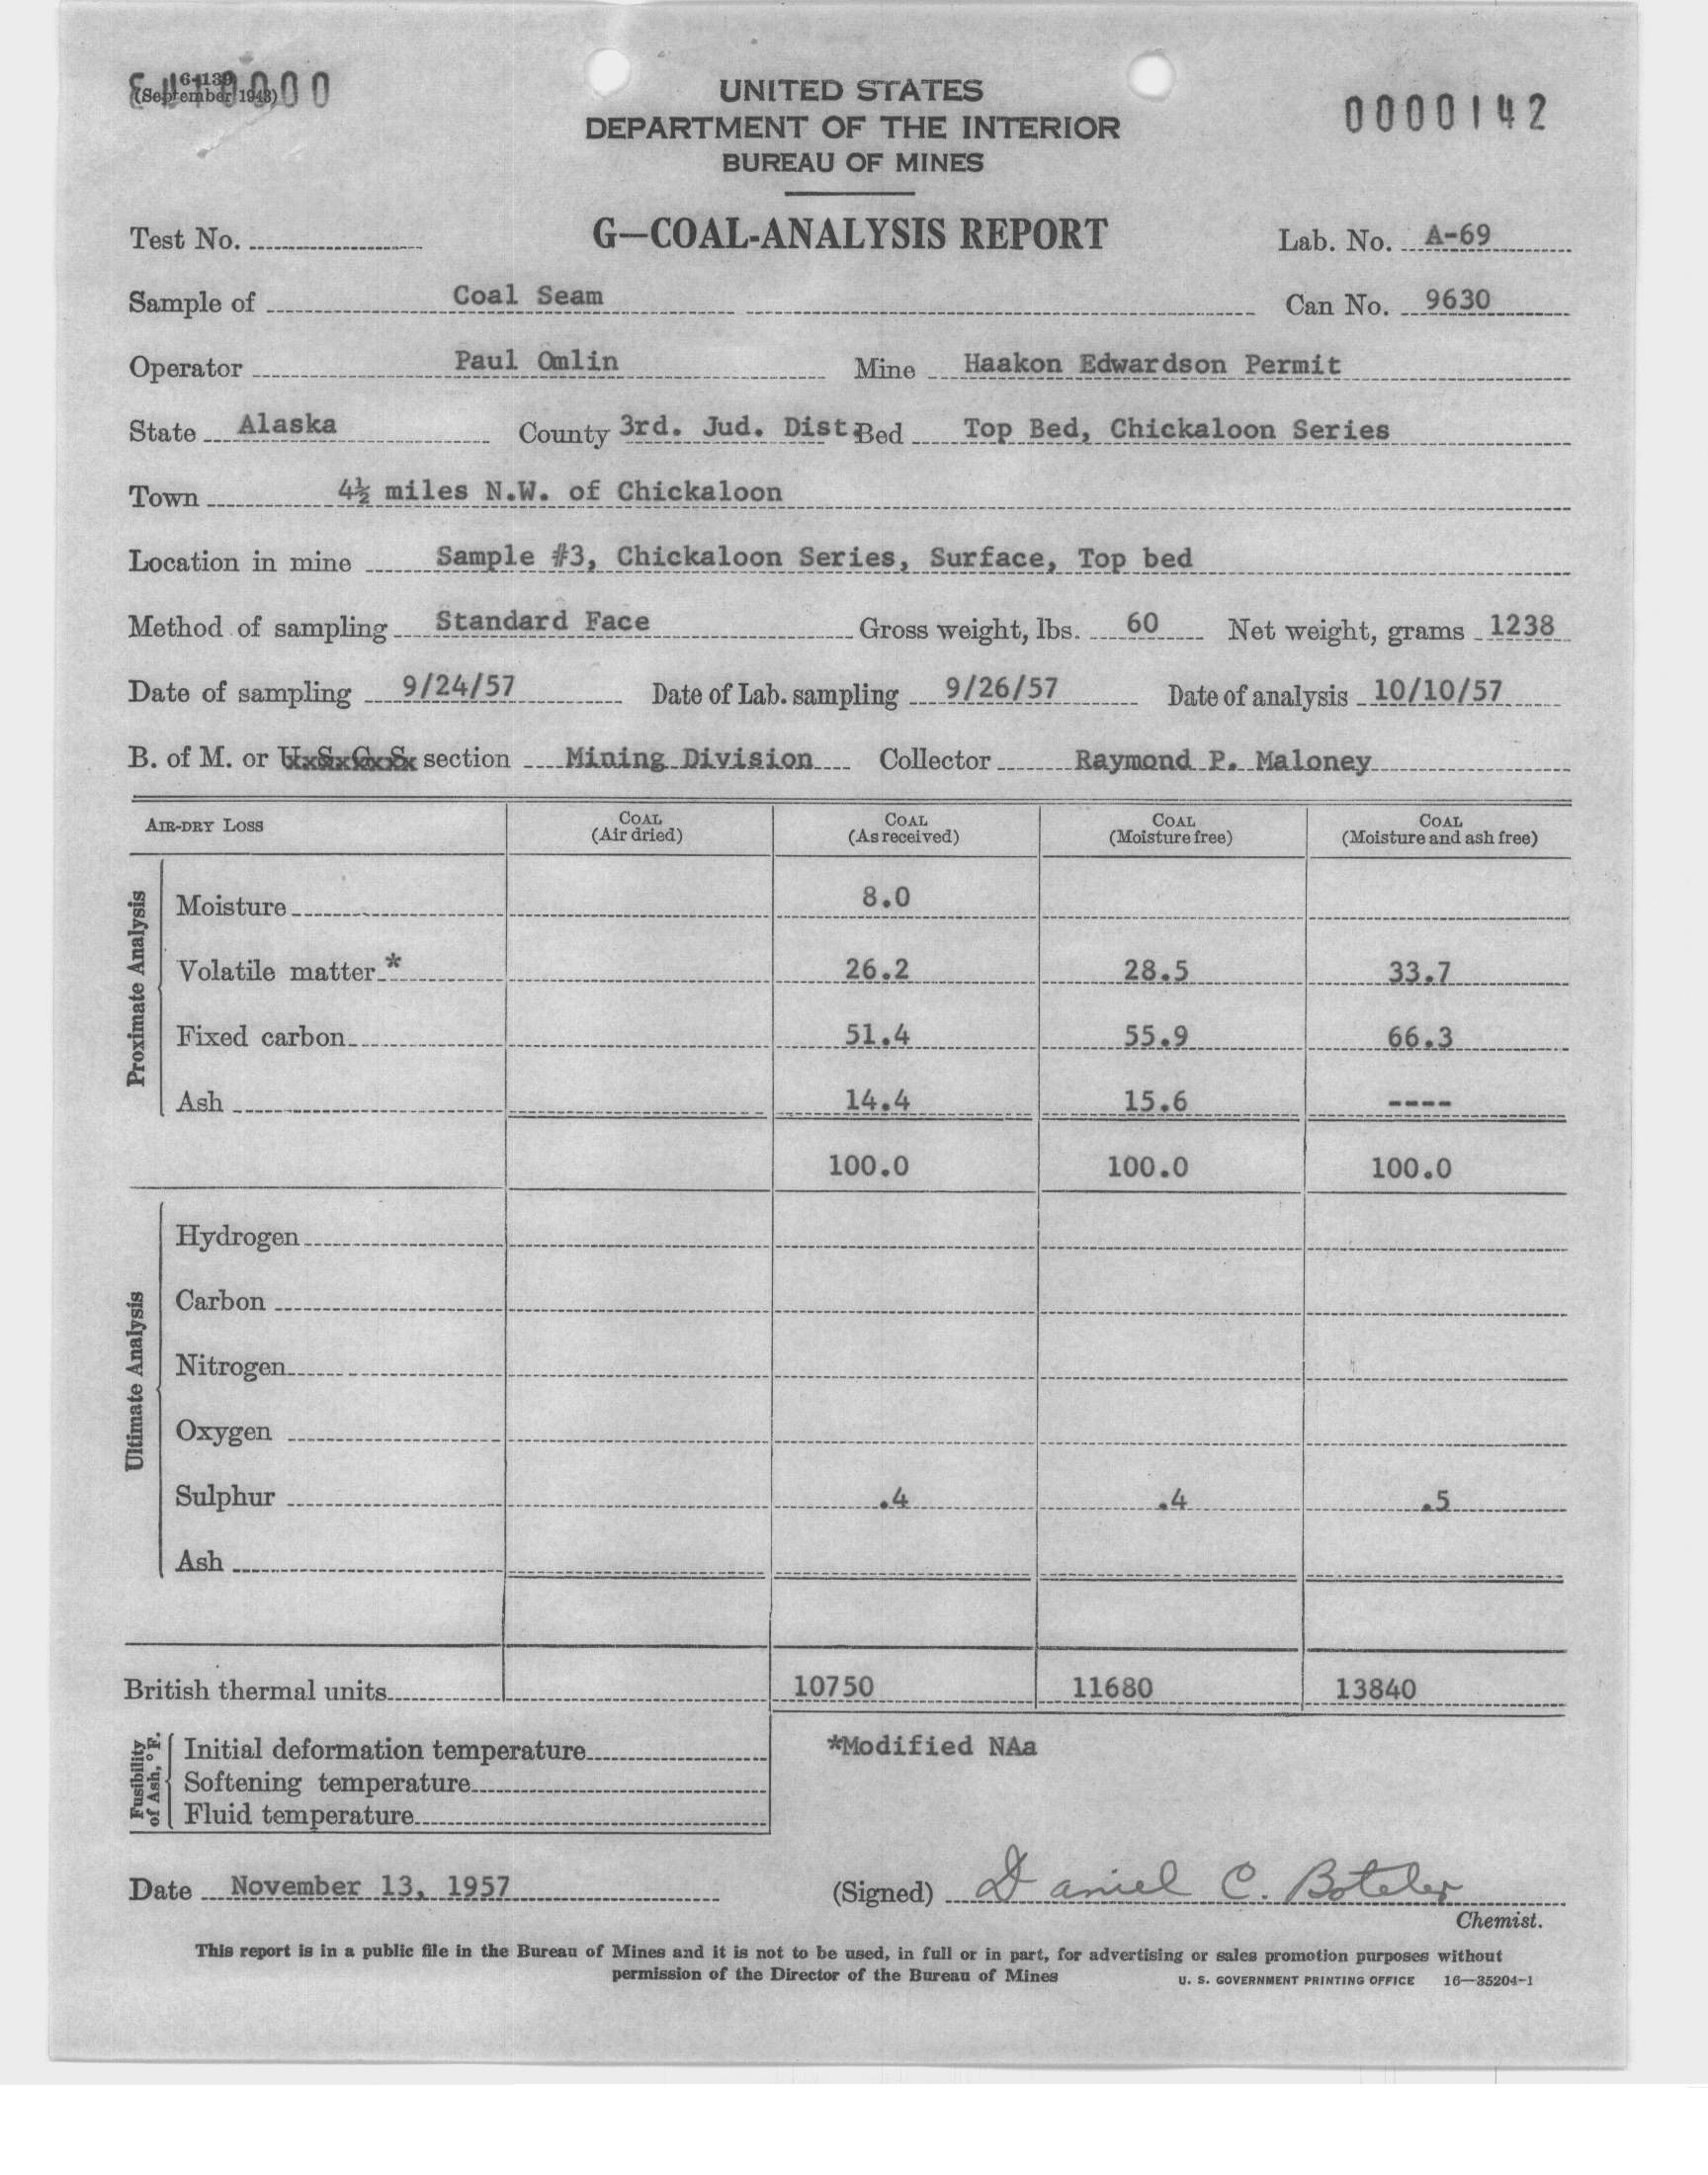 6-1139
(September 1943)
UNITED STATES
DEPARTMENT OF THE INTERIOR
BUREAU OF MINES
0000142
Test No.
G—COAL-ANALYSIS REPORT
Lab. No. A-69
Sample of Coal Seam Can No. 9630
Operator Paul Omlin Mine Haakon Edwardson Permit
State Alaska County 3rd. Jud. Dist. Bed Top Bed, Chickaloon Series
Town 4½ miles N.W. of Chickaloon
Location in mine Sample #3, Chickaloon Series, Surface, Top bed
Method of sampling Standard Face Gross weight, lbs. 60 Net weight, grams 1238
Date of sampling 9/24/57 Date of Lab. sampling 9/26/57 Date of analysis 10/10/57
B. of M. or U. S. G. S. section Mining Division Collector Raymond P. Maloney
AIR-DRY LOSS COAL (Air dried) COAL (As received) COAL (Moisture free) COAL (Moisture and ash free)
Proximate Analysis
Moisture 8.0
Volatile matter * 26.2 28.5 33.7
Fixed carbon 51.4 55.9 66.3
Ash 14.4 15.6 ----
100.0 100.0 100.0
Ultimate Analysis
Hydrogen
Carbon
Nitrogen
Oxygen
Sulphur .4 .4 .5
Ash
British thermal units 10750 11680 13840
Fusibility of Ash, °F.
Initial deformation temperature
Softening temperature
Fluid temperature
*Modified NAa
Date November 13, 1957 (Signed) Daniel C. Boteler
Chemist.
This report is in a public file in the Bureau of Mines and it is not to be used, in full or in part, for advertising or sales promotion purposes without
permission of the Director of the Bureau of Mines U. S. GOVERNMENT PRINTING OFFICE 16—35204-1